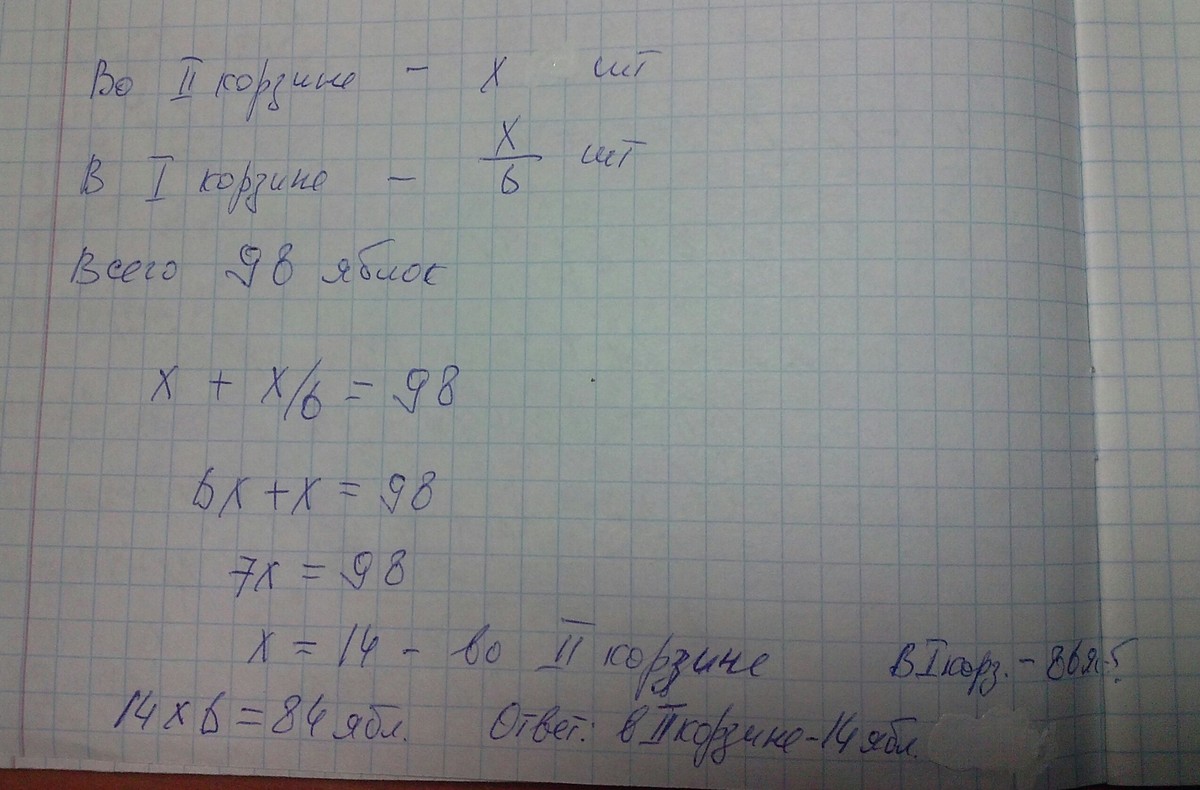 Во II корзине - x шт
В I корзине - x/6 шт
Всего 98 яблок
x + x/6 = 98
6x + x = 98
7x = 98
x = 14 - во II корзине
В I корз. - 86 яб
14 x 6 = 84 ябл.
Ответ: в II корзине - 14 ябл.